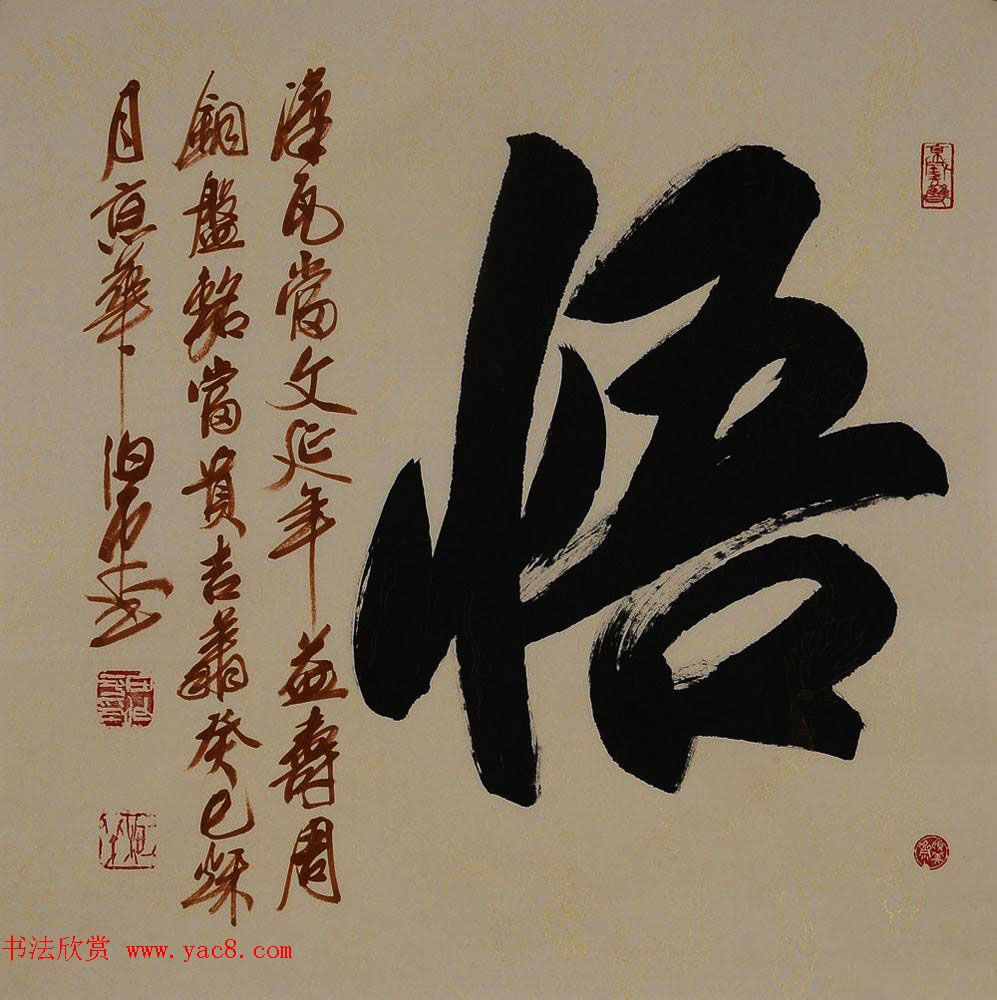 悟
漢瓦當文延年益壽周
銅盤銘富貴吉羊癸巳秋
月京華伯石書
书法欣赏 www.yac8.com